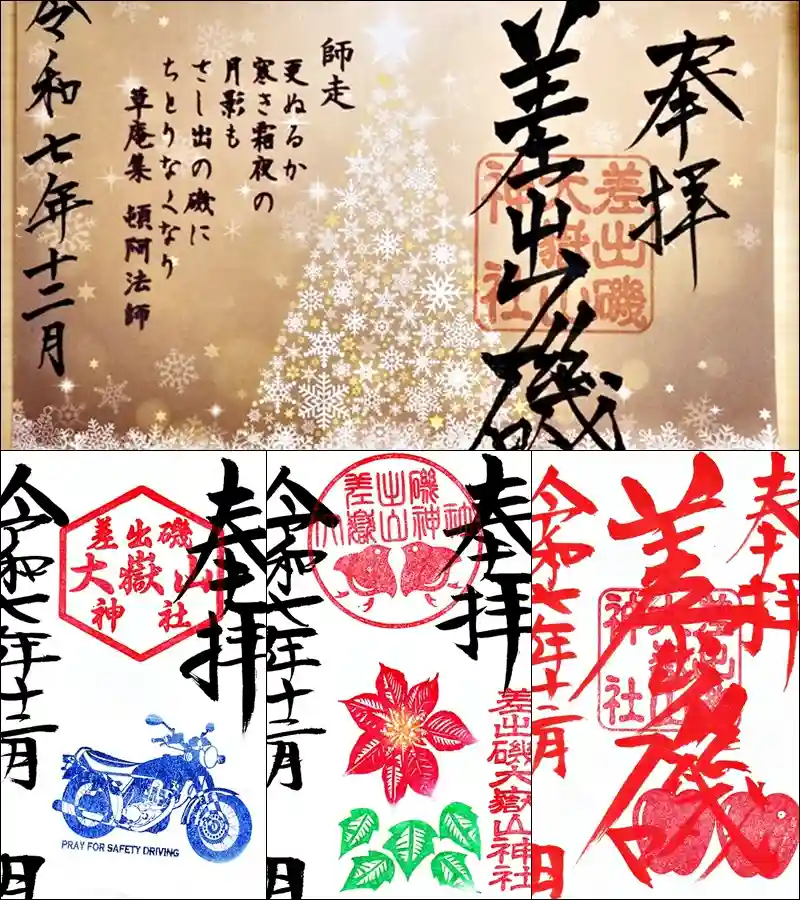 奉拝
差出磯
差出磯
大嶽山
神社
師走
更ぬるか
寒き霜夜の
月影も
さし出の磯に
ちとりなくなり
草庵集 頓阿法師
令和七年十二月
奉拝
差出磯
大嶽山
神社
令和七年十二月
日
PRAY FOR SAFETY DRIVING
奉拝
差出磯
大嶽山神社
差出磯大嶽山神社
令和七年十二月
日
奉拝
差出磯
差出磯
大嶽山
神社
令和七年十二月
日